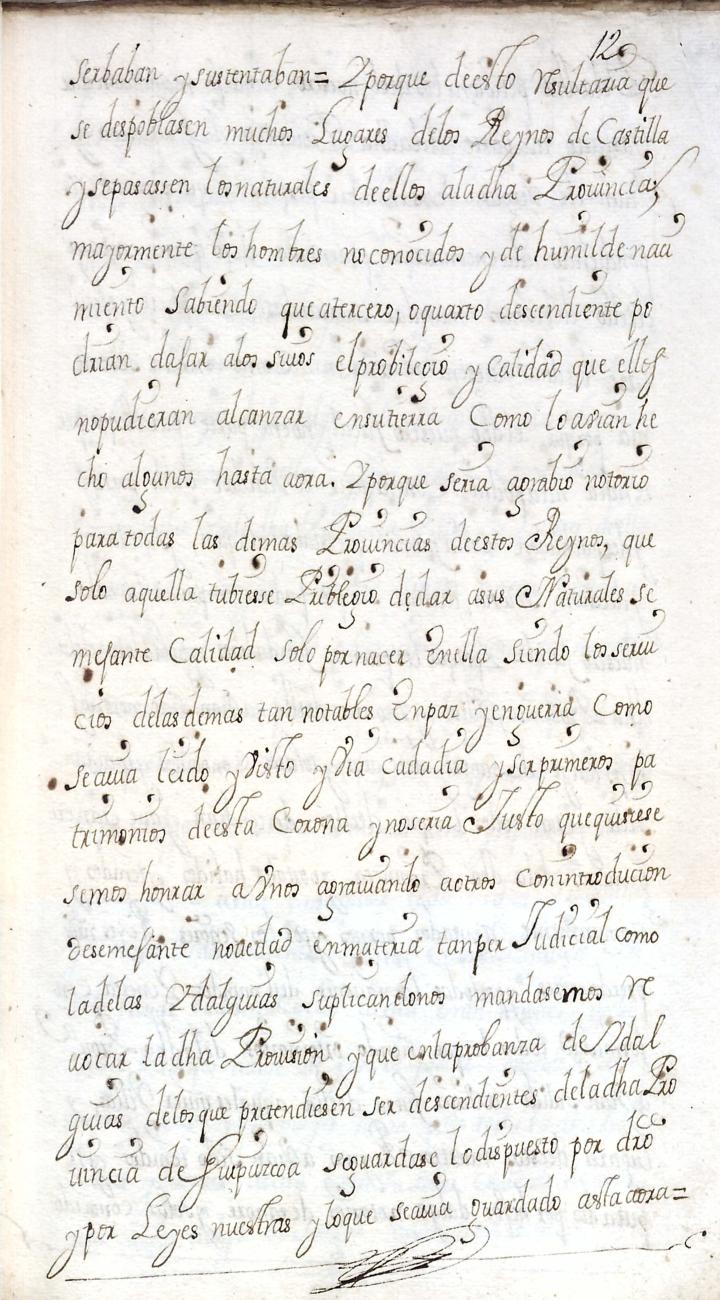 12
serbaban y sustentaban= Y porque de esto Resultaria que
se despoblasen muchos Lugares delos Reynos de Castilla
y sepasassen los naturales de ellos ala dha Prouincia,
mayormente los hombres no conocidos y de humilde naci
miento Sabiendo que atercero, o quarto descendiente po
drian dejar alos suios el probilegio y Calidad que ellos
nopudieran alcanzar ensutierra Como lo avian he
cho algunos hasta aora. Y porque seria agrabio notorio
para todas las demas Prouincias de estos Reynos, que
solo aquella tubiesse Pribilegio de dar asus Naturales se
mejante Calidad solo por nacer Enella Siendo los serui
cios delas demas tan notables En paz y en guerra Como
se auia leido y Visto y Via Cada dia y ser primeros pa
trimonios de esta Corona y no seria Justo que quisiese
semos honrar a Vnos agrauiando aotros Con introducion
de semejante nouedad en materia tan per Judicial como
la delas Ydalguias Suplicandonos mandasemos Re
vocar la dha Prouision y que en la probanza de Ydal
guias delos que pretendiesen ser descendientes dela dha Pro
uincia de Guipuzcoa se guardase lo dispuesto por dro
y por Leyes nuestras y lo que se auia guardado asta aora=